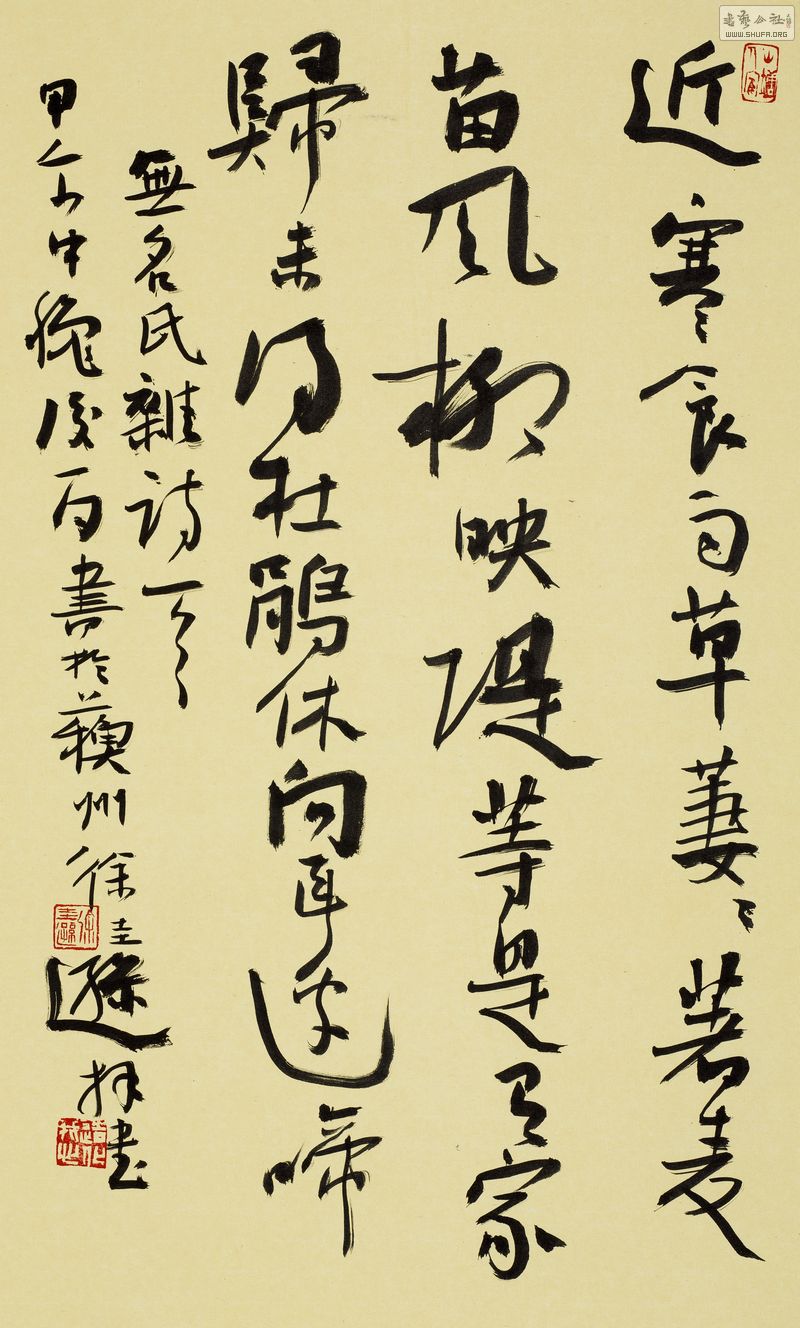 近寒食雨草萋萋著麦
苗風柳映堤等是有家
歸未得杜鵑休向耳邊啼
無名氏雜詩一首
甲午中秋後一百書於蘇州徐圭遜拜書
書藝公社
WWW.SHUFA.ORG